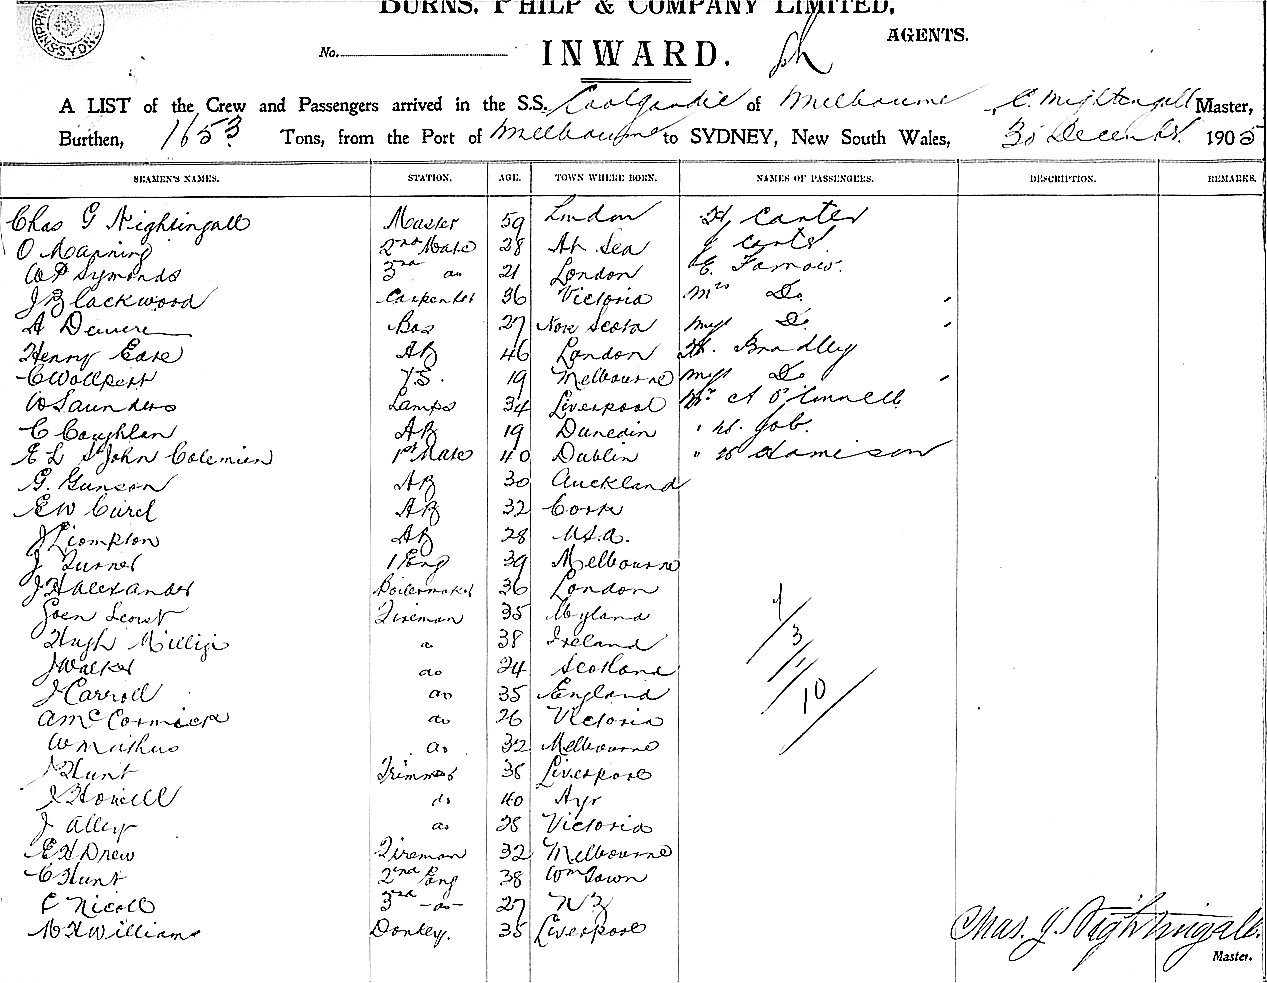 BURNS, PHILP & COMPANY LIMITED,
AGENTS.
No.
INWARD.
A LIST of the Crew and Passengers arrived in the S.S. Coolgardie of Melbourne C. Nightingall Master,
Burthen, 1653 Tons, from the Port of Melbourne to SYDNEY, New South Wales, 30 December 1905
SEAMEN'S NAMES. STATION. AGE. TOWN WHERE BORN. NAMES OF PASSENGERS. DESCRIPTION. REMARKS.
Chas G Nightingall Master 59 London H Carter
O Manning 2nd Mate 28 At Sea J Carter
W P Symonds 3rd do 21 London E. Farrow.
J Blackwood Carpenter 36 Victoria Mrs Do
A Bos 27 Nova Scotia Miss Do
Henry Ease AB 46 London H. Bradley
C Wollpert 19 Melbourne Miss Do
W Saunders Lamps 34 Liverpool Mr A O'Connell
C Coughlan AB 19 Dunedin " W. Job.
E L St John Colemien 1st Mate 40 Dublin " W Jamieson
G. Gunson AB 30 Auckland
E W Curel AB 32 Cork
J Compton AB 28 U.S.A.
J Turner 1 Eng 39 Melbourne
J H Alexander Boilermaker 36 London
Fireman 35
Hugh Milligi 38 Ireland
J Walker do 24 Scotland
J Carroll do 35 England
A McCormick do 26 Victoria
W do 32 Melbourne
J Hunt Trimmer 36 Liverpool
J Howell do 40 Ayr
J Alley do 28 Victoria
E H Drew Fireman 32 Melbourne
C Hunt 2nd Eng 38 Wm Town
C Nicoll 3rd -do- 27 NZ
W H Williams Donkey. 35 Liverpool
1/3/1/10
Chas. G. Nightingall
Master.